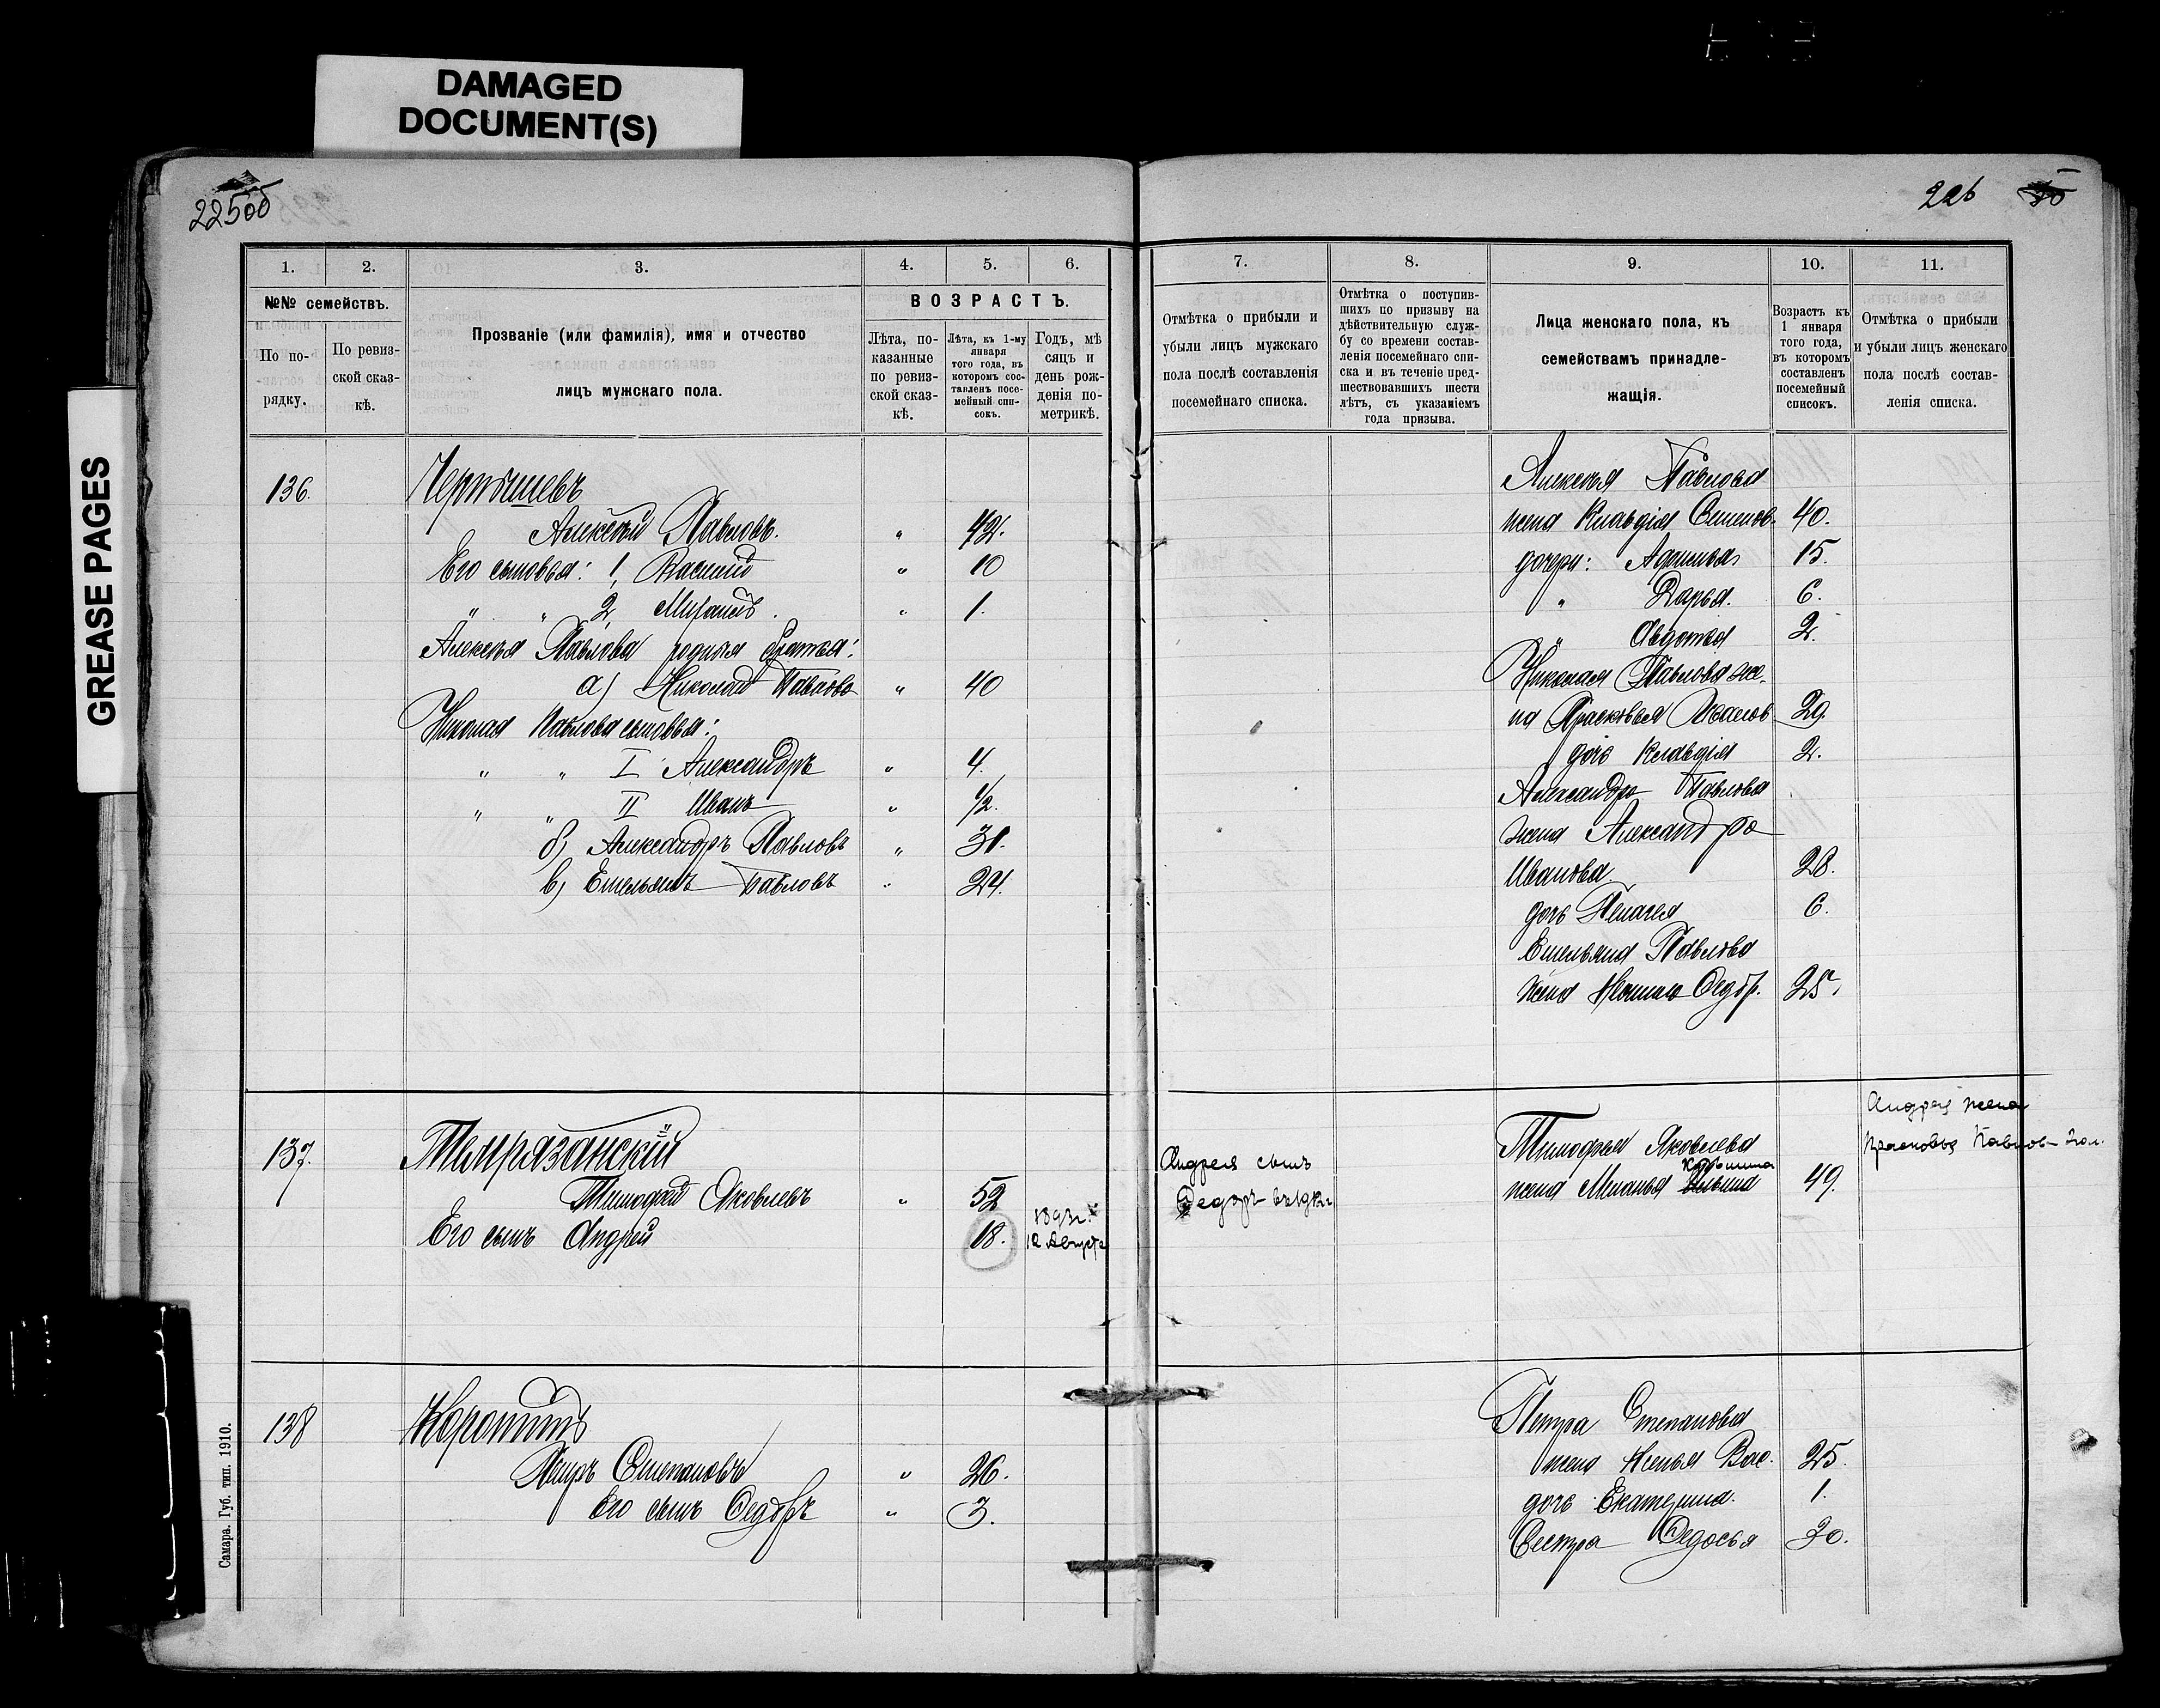 DAMAGED
DOCUMENT(S)
GREASE PAGES
225об
226
1. 2. 3. 4. 5. 6.
№№ семействъ.
По по-
рядку.
По ревиз-
ской сказ-
кѣ.
Прозваніе (или фамилія), имя и отчество
лицъ мужскаго пола.
ВОЗРАСТЪ.
Лѣта, по-
казанные
по ревиз-
ской сказ-
кѣ.
Лѣта, къ 1-му
января
того года, въ
которомъ сос-
тавленъ посе-
мейный спи-
сокъ.
Годъ, мѣ
сяцъ и
день рож-
денія по-
метрикѣ.
136.
Чернышевъ
Алексѣй Павловъ. " 42.
Его сыновья: 1, Василий " 10
" " 2, Михаилъ. " 1.
Алексѣя Павлова родныя братья:
а) Николай Павловъ " 40
Николая Павлова сыновья:
" " I Александръ " 4.
" " II Иванъ " 1/2.
б) Александръ Павловъ " 31.
в) Емельянъ Павловъ " 24.
137.
Темрязанскій
Тимофей Яковлевъ " 52
Его сынъ Андрей 18. 1893г.
12 Августа
138
Коротинъ
Петръ Степановъ " 26.
Его сынъ Федоръ " 3.
Самара. Губ. тип. 1910.
7. 8. 9. 10. 11.
Отмѣтка о прибыли и
убыли лицъ мужскаго
пола послѣ составленія
посемейнаго списка.
Отмѣтка о поступив-
шихъ по призыву на
дѣйствительную служ-
бу со времени состав-
ленія посемейнаго спи-
ска и въ теченіе пред-
шествовавшихъ шести
лѣтъ, съ указаніемъ
года призыва.
Лица женскаго пола, къ
семействамъ принадле-
жащія.
Возрастъ къ
1 января
того года,
въ которомъ
составленъ
посемейный
списокъ.
Отмѣтка о прибыли
и убыли лицъ женскаго
пола послѣ состав-
ленія списка.
Алексѣя Павлова
жена Клавдія Семенов. 40.
дочери: 15.
" Дарья. 6.
" Авдотья 2.
Николая Павлова же-
на Прасковья 29.
дочь Клавдія 2.
Александра Павлова
жена Александра
Иванова. 28.
дочь Пелагея 6.
Емельяна Павлова
жена Федор. 25.
Андрея сынъ
Федоръ
Тимофея Яковлева
жена Меланья Кузьмина 49.
Андрея жена
Прасковья Павлов-
Петра Степанова
жена Ксенья Вас. 25.
дочь Екатерина. 1.
Сестра Федосья 20.